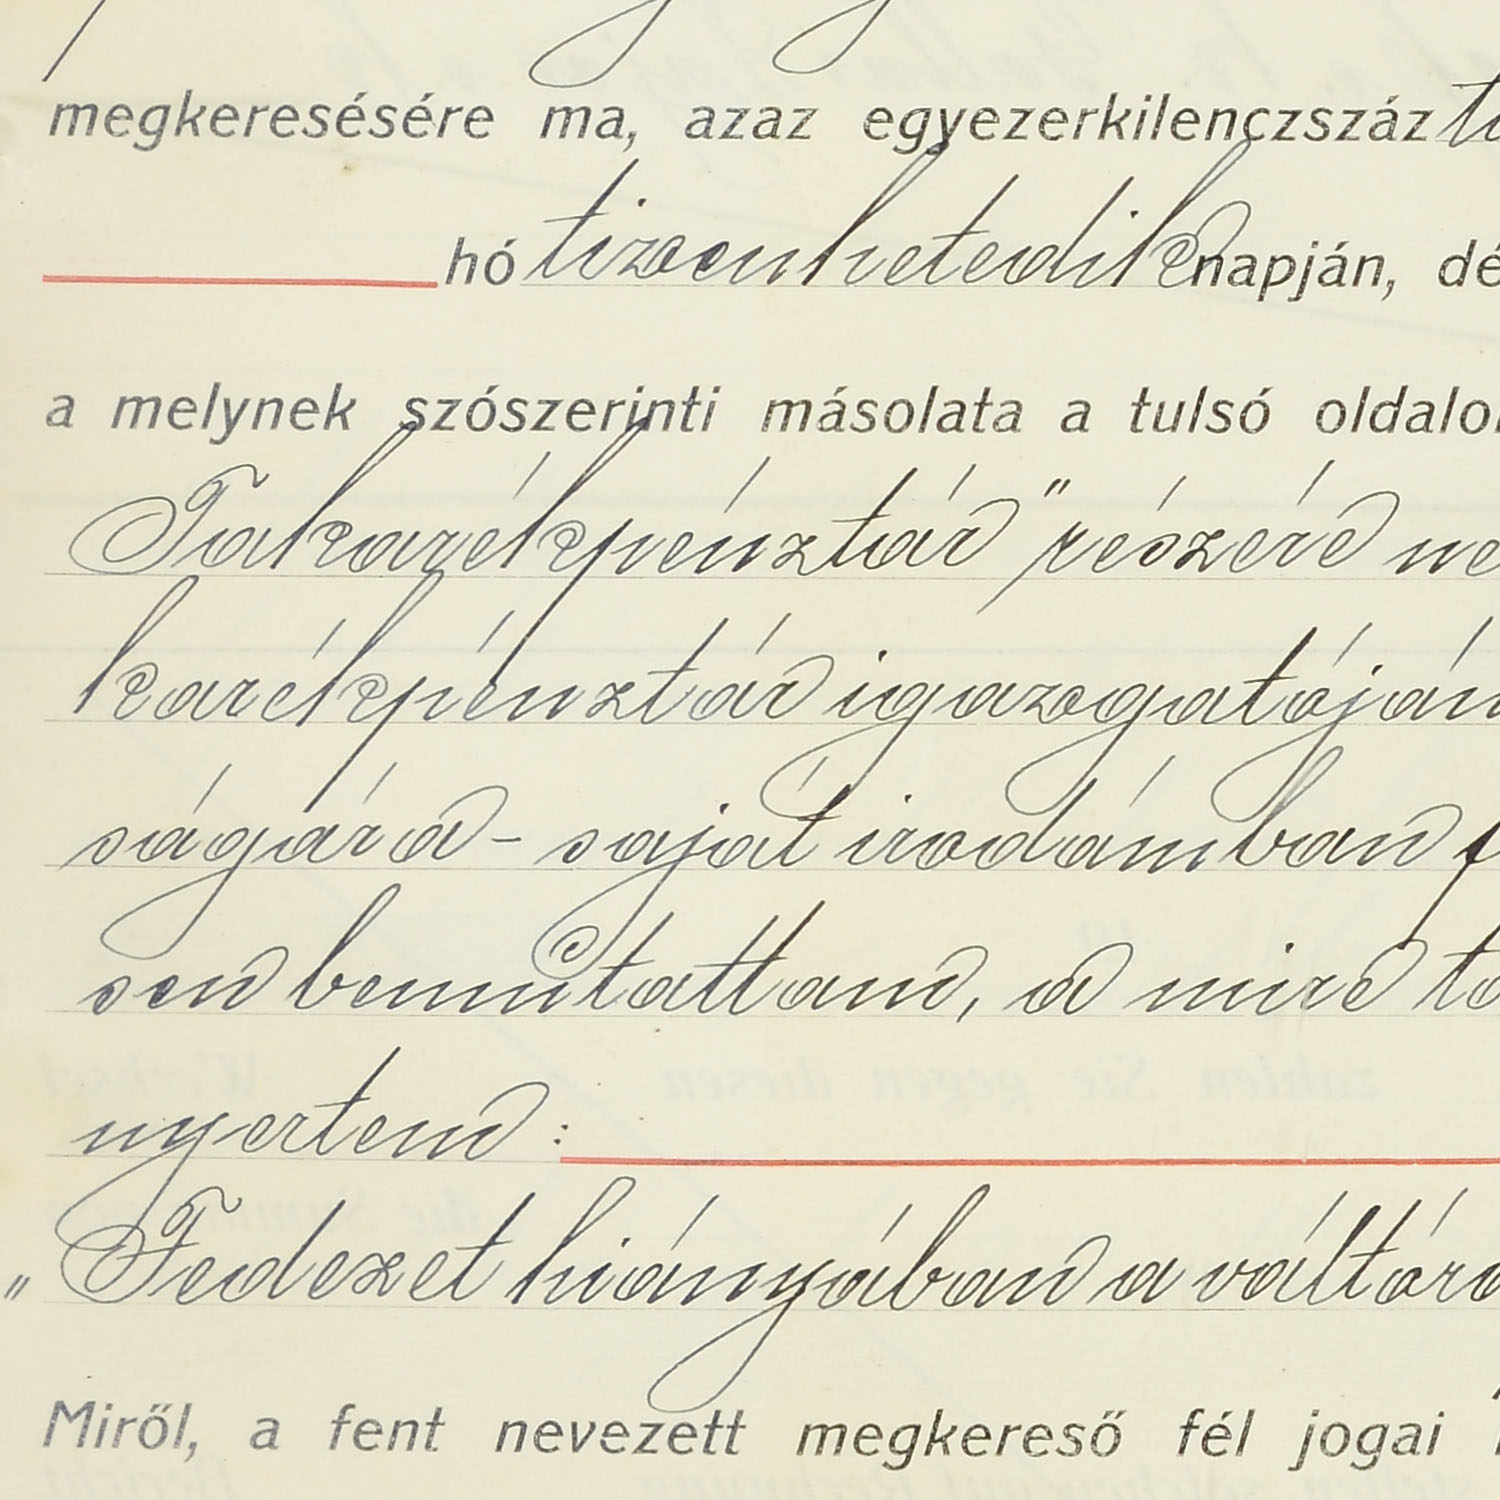 megkeresésére ma, azaz egyezerkilenczszáz
hó tizenhetedik napján, dé
a melynek szószerinti másolata a tulsó oldalon
Takarékpénztár" részére ne
karékpénztár igazgatóján
ságára - saját irodámban
sen bemutattam, a mire
nyertem :
"Fedezet hiányában a váltó
Miről, a fent nevezett megkereső fél jogai